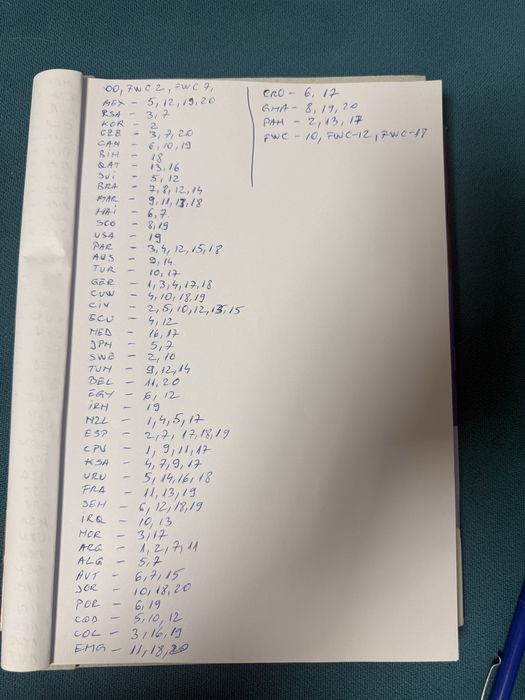 00, FWC 2, FWC 7,
MEX - 5, 12, 19, 20
RSA - 3, 7
KOR - 2
CZE - 3, 7, 20
CAN - 6, 10, 19
BIH - 18
QAT - 13, 16
SUI - 5, 12
BRA - 7, 8, 12, 14
MAR - 9, 11, 13, 18
HAI - 6, 7
SCO - 8, 19
USA - 19
PAR - 3, 4, 12, 15, 18
AUS - 9, 14
TUR - 10, 17
GER - 1, 3, 4, 17, 18
CUW - 4, 10, 18, 19
CIV - 2, 5, 10, 12, 13, 15
ECU - 4, 12
NED - 16, 17
JPN - 5, 7
SWE - 2, 10
TUN - 9, 12, 14
BEL - 11, 20
EGY - 6, 12
IRN - 19
NZL - 1, 4, 5, 17
ESP - 2, 7, 17, 18, 19
CPV - 1, 9, 11, 17
KSA - 4, 7, 9, 17
URU - 5, 14, 16, 18
FRA - 11, 13, 19
SEN - 6, 12, 18, 19
IRQ - 10, 13
NOR - 3, 17
ARG - 1, 2, 7, 11
ALG - 5, 7
AUT - 6, 7, 15
JOR - 10, 18, 20
POR - 6, 19
COD - 5, 10, 12
COL - 3, 16, 19
ENG - 11, 18, 20
CRO - 6, 17
GHA - 8, 19, 20
PAN - 2, 13, 17
FWC - 10, FWC-12, FWC-18